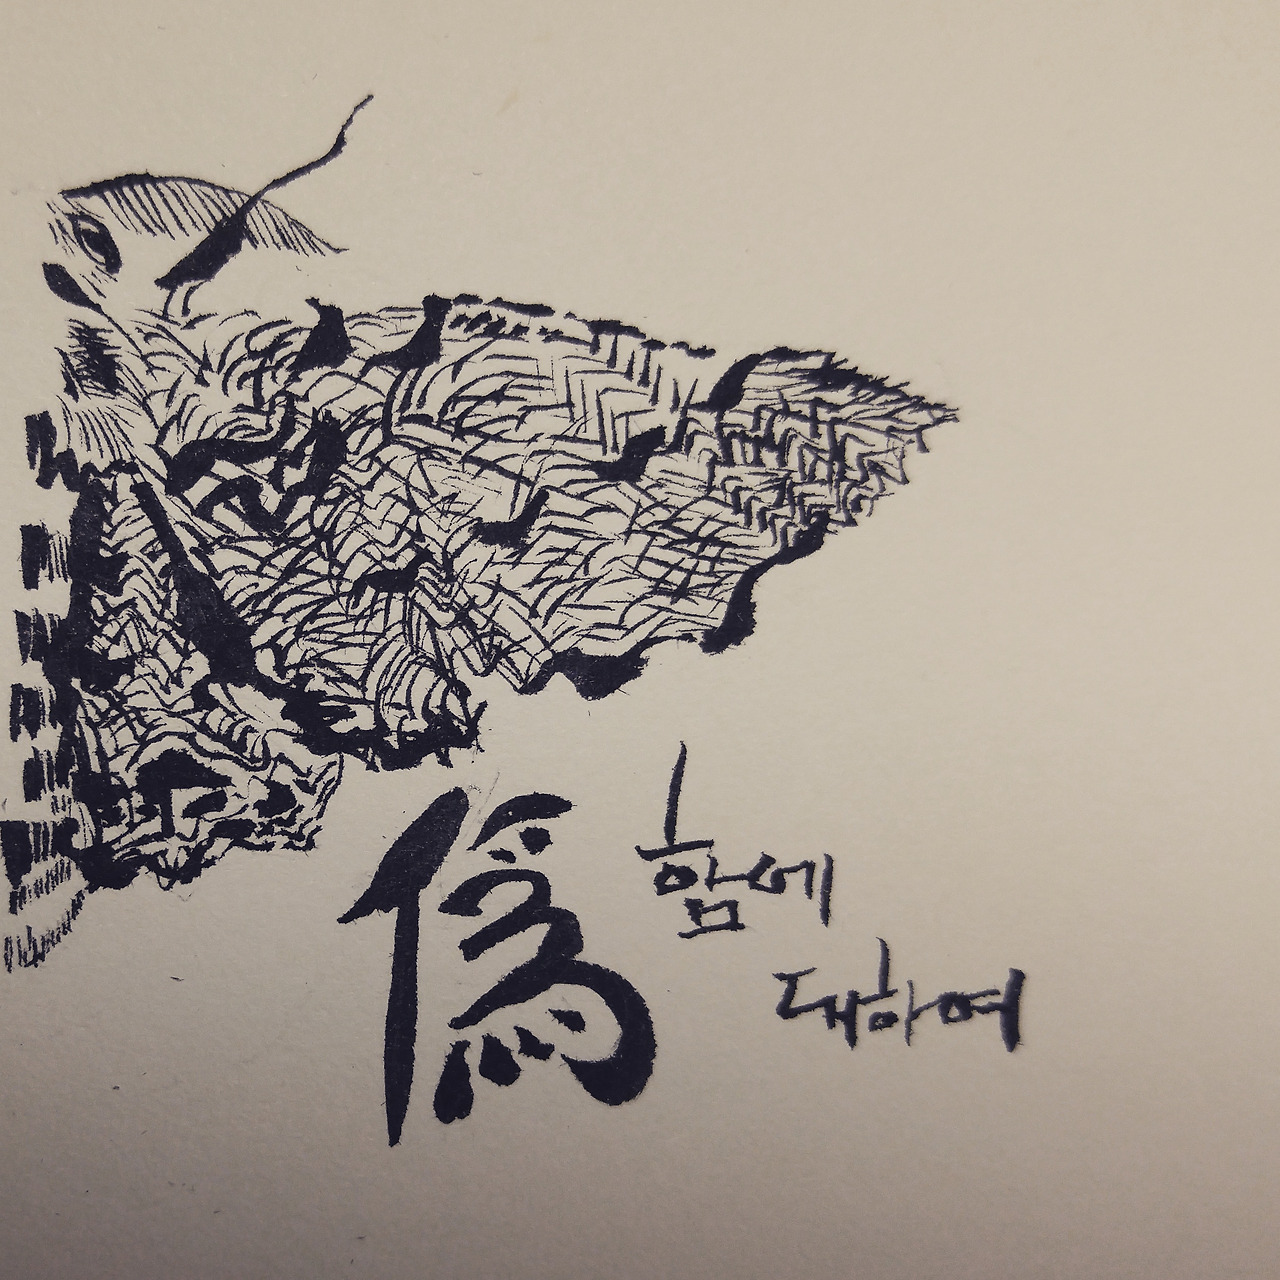 僞함에
대하여